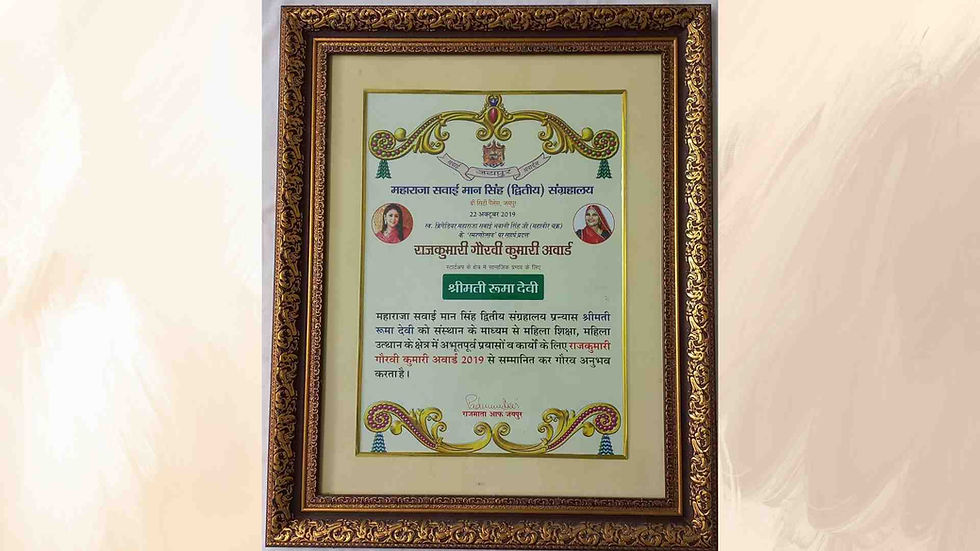 जयपुर
महाराजा सवाई मान सिंह (द्वितीय) संग्रहालय
दी सिटी पैलेस, जयपुर
22 अक्टूबर 2019
स्व. ब्रिगेडियर महाराजा सवाई भवानी सिंह जी (महावीर चक्र)
के 'स्मरणोत्सव' पर सहर्ष प्रदत्त
राजकुमारी गौरवी कुमारी अवार्ड
स्टार्टअप के क्षेत्र में सामाजिक प्रभाव के लिए
श्रीमती रूमा देवी
महाराजा सवाई मान सिंह द्वितीय संग्रहालय प्रन्यास श्रीमती
रूमा देवी को संस्थान के माध्यम से महिला शिक्षा, महिला
उत्थान के क्षेत्र में अभूतपूर्व प्रयासों व कार्यों के लिए राजकुमारी
गौरवी कुमारी अवार्ड 2019 से सम्मानित कर गौरव अनुभव
करता है।
राजमाता आफ जयपुर